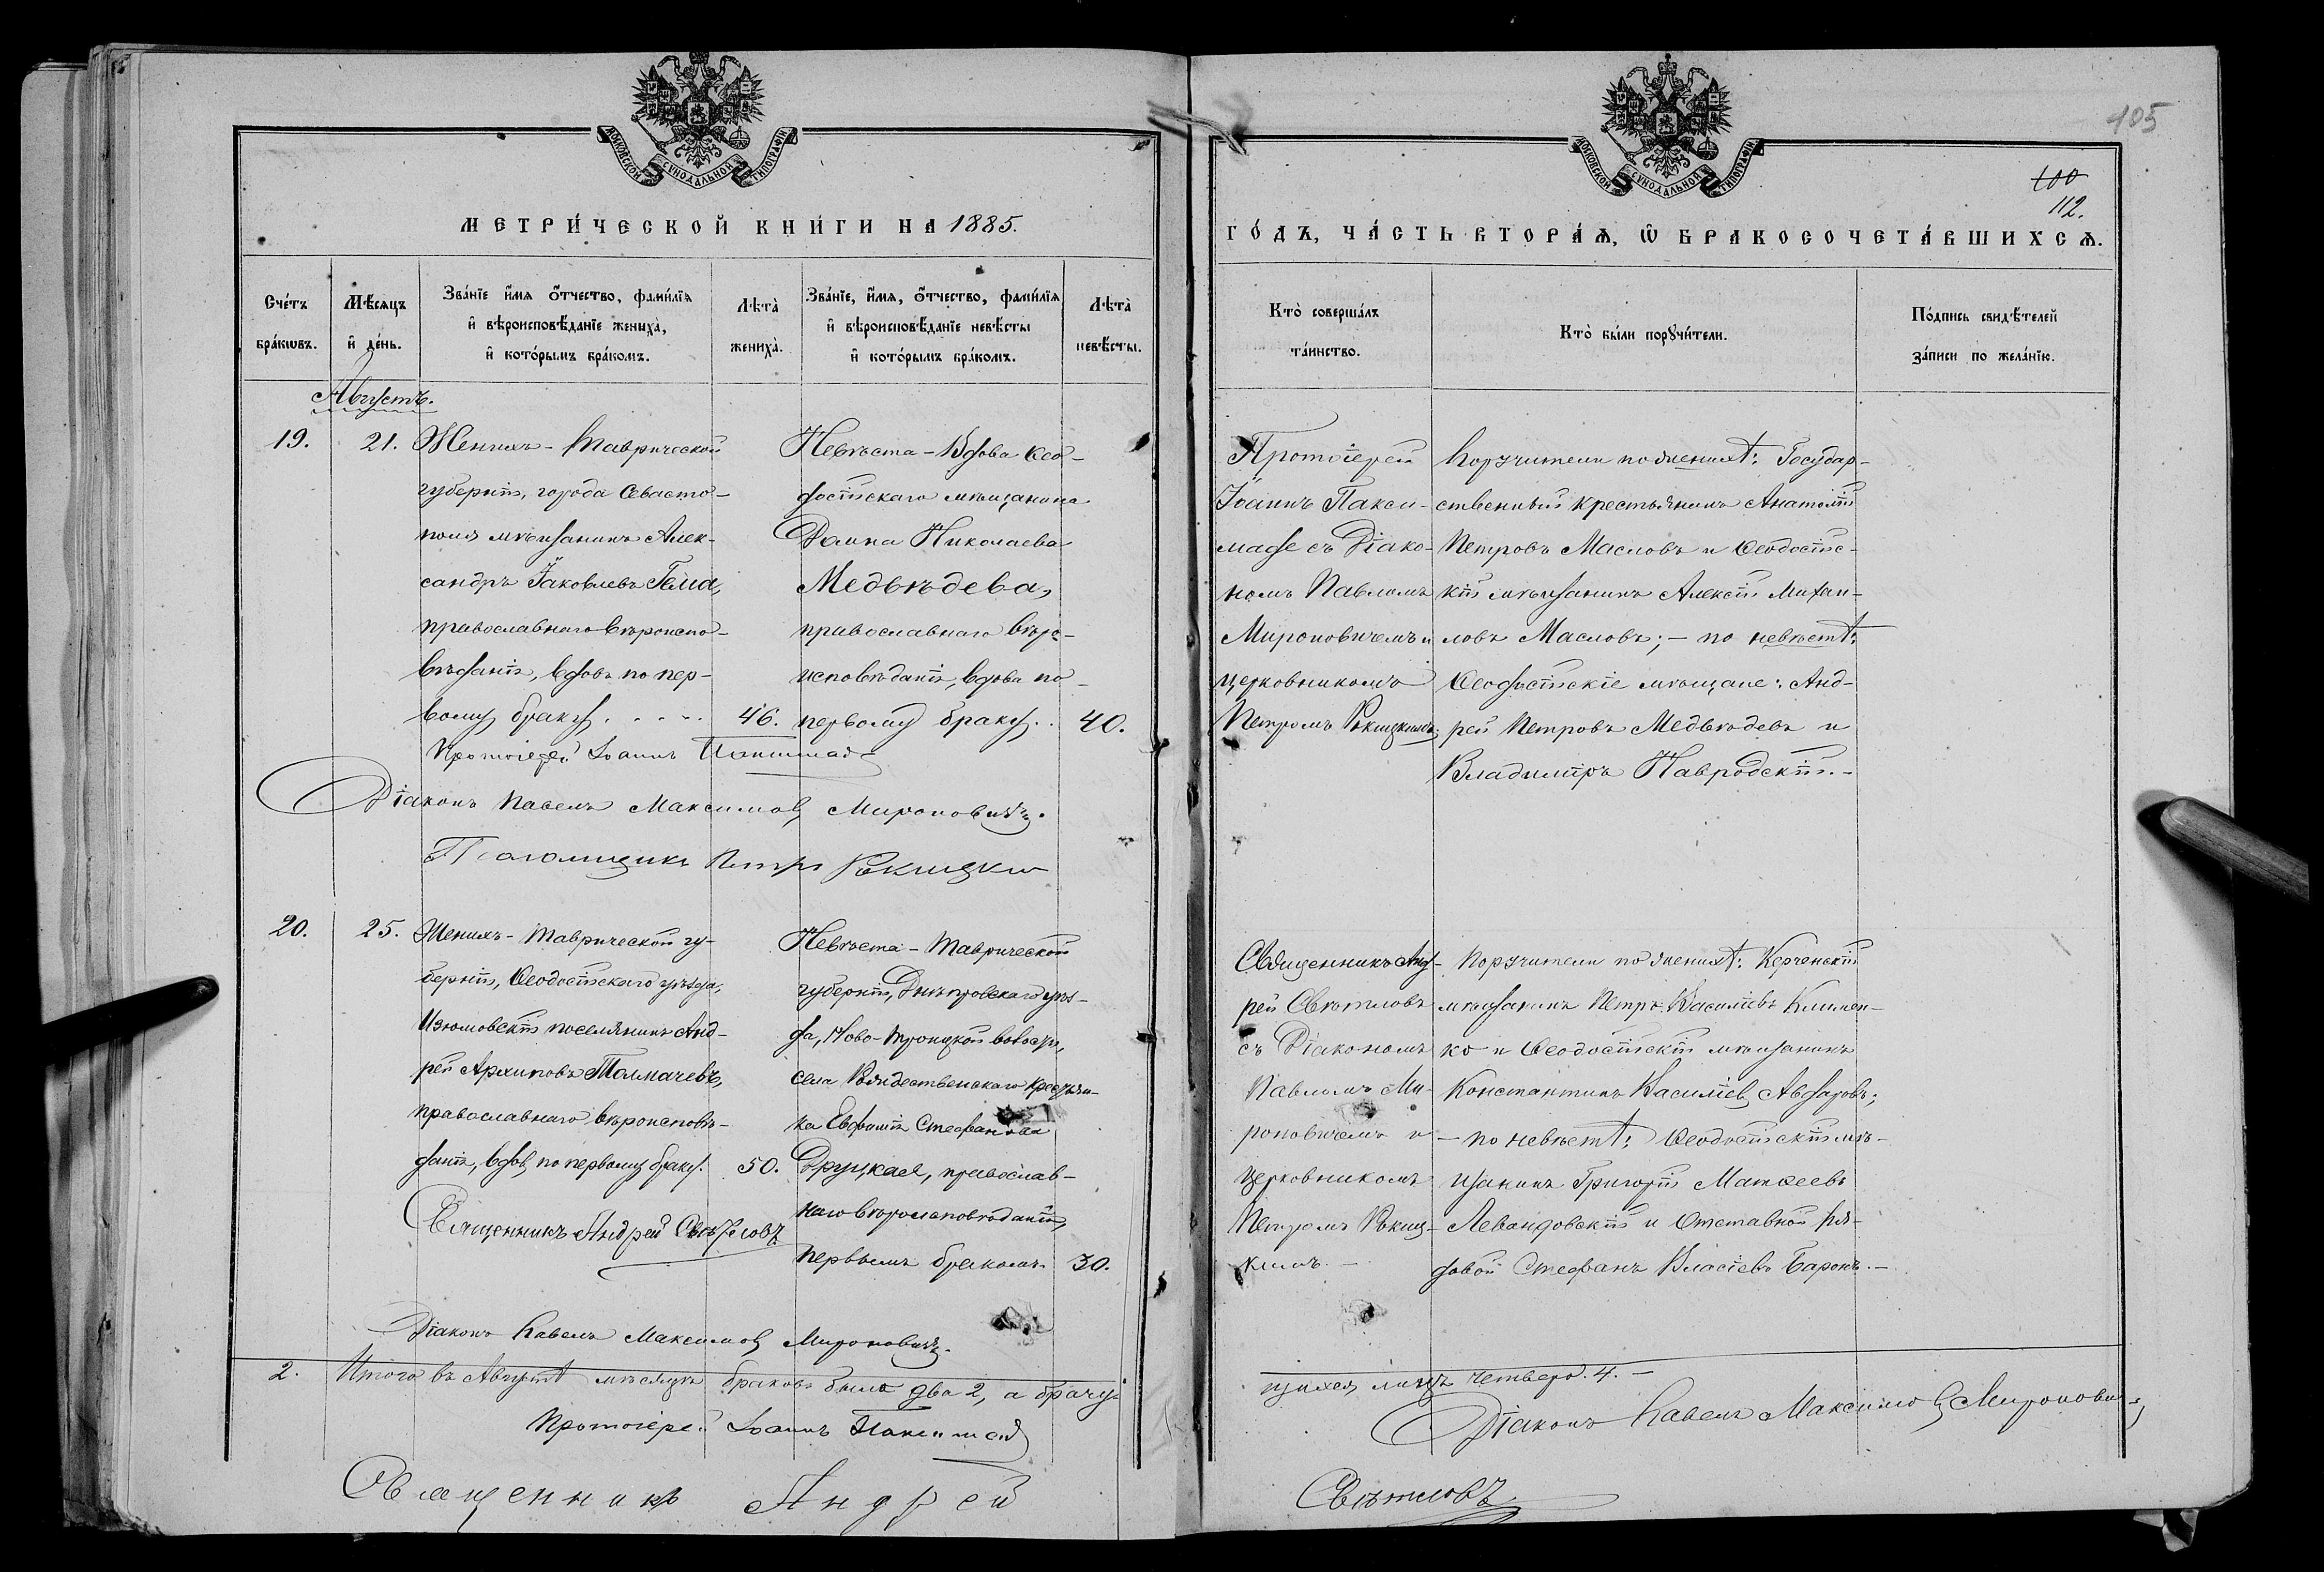 МОСКОВСКОЙ СѴНОДАЛЬНОЙ ТИПОГРАФІИ
МЕТРИ́ЧЕСКОЙ КНИ́ГИ НА 1885.
Сче́тъ бра́кѡвъ.
Мѣ́сяцъ и҆ де́нь.
Зва́нїе и҆́мя ѻ҆́тчество, фами́лїя
и҆ вѣроисповѣ́данїе жениха̀,
и҆ кото́рымъ бра́комъ.
Лѣта̀ жениха̀.
Зва́нїе, и҆́мя, ѻ҆́тчество, фами́лїя
и҆ вѣроисповѣ́данїе невѣ́сты
и҆ кото́рымъ бра́комъ.
Лѣта̀ невѣ́сты.
Августъ.
19.
21.
Женихъ - Таврической
губерніи, города Севасто-
поля мѣщанинъ Алек-
сандръ Іаковлевъ
православнаго вѣроиспо-
вѣданія, вдовъ по пер-
вому браку, . . . . 46.
Невѣста - Вдова Ѳео-
досійскаго мѣщанина
Домна Николаева
Медвѣдева,
православнаго вѣро-
исповѣданія, вдова по
первому браку. . 40.
Протоіерей Іоаннъ Паксимадѣ
Діаконъ Павелъ Максимовъ Мироновичъ.
Псаломщикъ Петръ Рокицкій
20.
25.
Женихъ - Таврической гу-
берніи, Ѳеодосійскаго уѣзда,
Изюмовскій поселянинъ Анд-
рей Архиповъ Толмачевъ,
православнаго вѣроисповѣ-
данія, вдовъ по первому браку. 50.
Священникъ Андрей Свѣтловъ
Невѣста - Таврической
губерніи, Днѣпровскаго уѣз-
да, Ново-Троицкой волости,
села Рождественскаго крестьян-
ка Евфимія Стефанова
Друцкая, православ-
наго вѣроисповѣданія,
первымъ бракомъ. 30.
Діаконъ Павелъ Максимовъ Мироновичъ.
2.
Итого въ Августѣ мѣсяцѣ браковъ было два 2, а брачу-
Протоіерей Іоаннъ Паксимадѣ
Священникъ Андрей
МОСКОВСКОЙ СѴНОДАЛЬНОЙ ТИПОГРАФІИ
105
100
112.
ГО́ДЪ, ЧА́СТЬ ВТОРА́Ѧ, Ѡ҆ БРАКОСОЧЕТА́ВШИХСѦ.
Кто̀ соверша́лъ
та́инство.
Кто̀ бы́ли порꙋчи́тели.
По́дпись свидѣ́телей
за́писи по жела́нїю.
Протоіерей
Іоаннъ Пакси-
маде съ Діако-
номъ Павломъ
Мироновичемъ и
церковникомъ
Петромъ Рокицкимъ.
Поручители по женихѣ: Государ-
ственный крестьянинъ Анатолій
Петровъ Масловъ и Ѳеодосійс-
кій мѣщанинъ Алексій Михаи-
ловъ Масловъ; - по невѣстѣ:
Ѳеодосійскіе мѣщане: Анд-
рей Петровъ Медвѣдевъ и
Владиміръ Навродскій. -
Священникъ Анд-
рей Свѣтловъ
съ Діакономъ
Павломъ Ми-
роновичемъ и
церковникомъ
Петромъ Рокиц-
кимъ. -
Поручители по женихѣ: Керченскій
мѣщанинъ Петръ Василіевъ Климен-
ко и Ѳеодосійскій мѣщанинъ
Константинъ Василіевъ Авдаровъ;
- по невѣстѣ: Ѳеодосійскій мѣ-
щанинъ Григорій Матѳеевъ
Левандовскій и Отставной ря-
довой Стефанъ Власіевъ Баронъ. -
щихся лицъ четверо. 4. -
Діаконъ Павелъ Максимовъ Мироновичъ
Свѣтловъ.